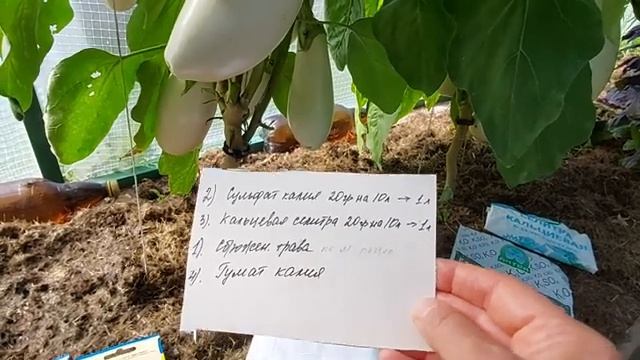 2) Сульфат калия 20гр на 10л → 1л
3). Кальцевая селитра 20гр на 10л → 1л
1) Сброжен трава
4). Гумат калия
СЕЛИТРА
КАЛЬЦИЕВАЯ